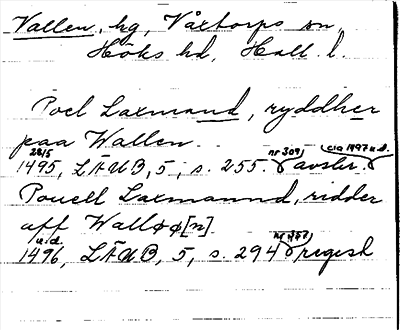 Vallen, hg, Våxtorps sn,
Höks hd, Hall. l.
Poel Laxmand, ryddher
paa Wallen.
28/5 nr 309 c:a 1497 u.d.
1495, LÄUB, 5, s. 255. avskr.
Pouell Laxmannd, ridder
aff Walløø[n]
u.d.
1496, LÄUB, 5, s. 294 regest